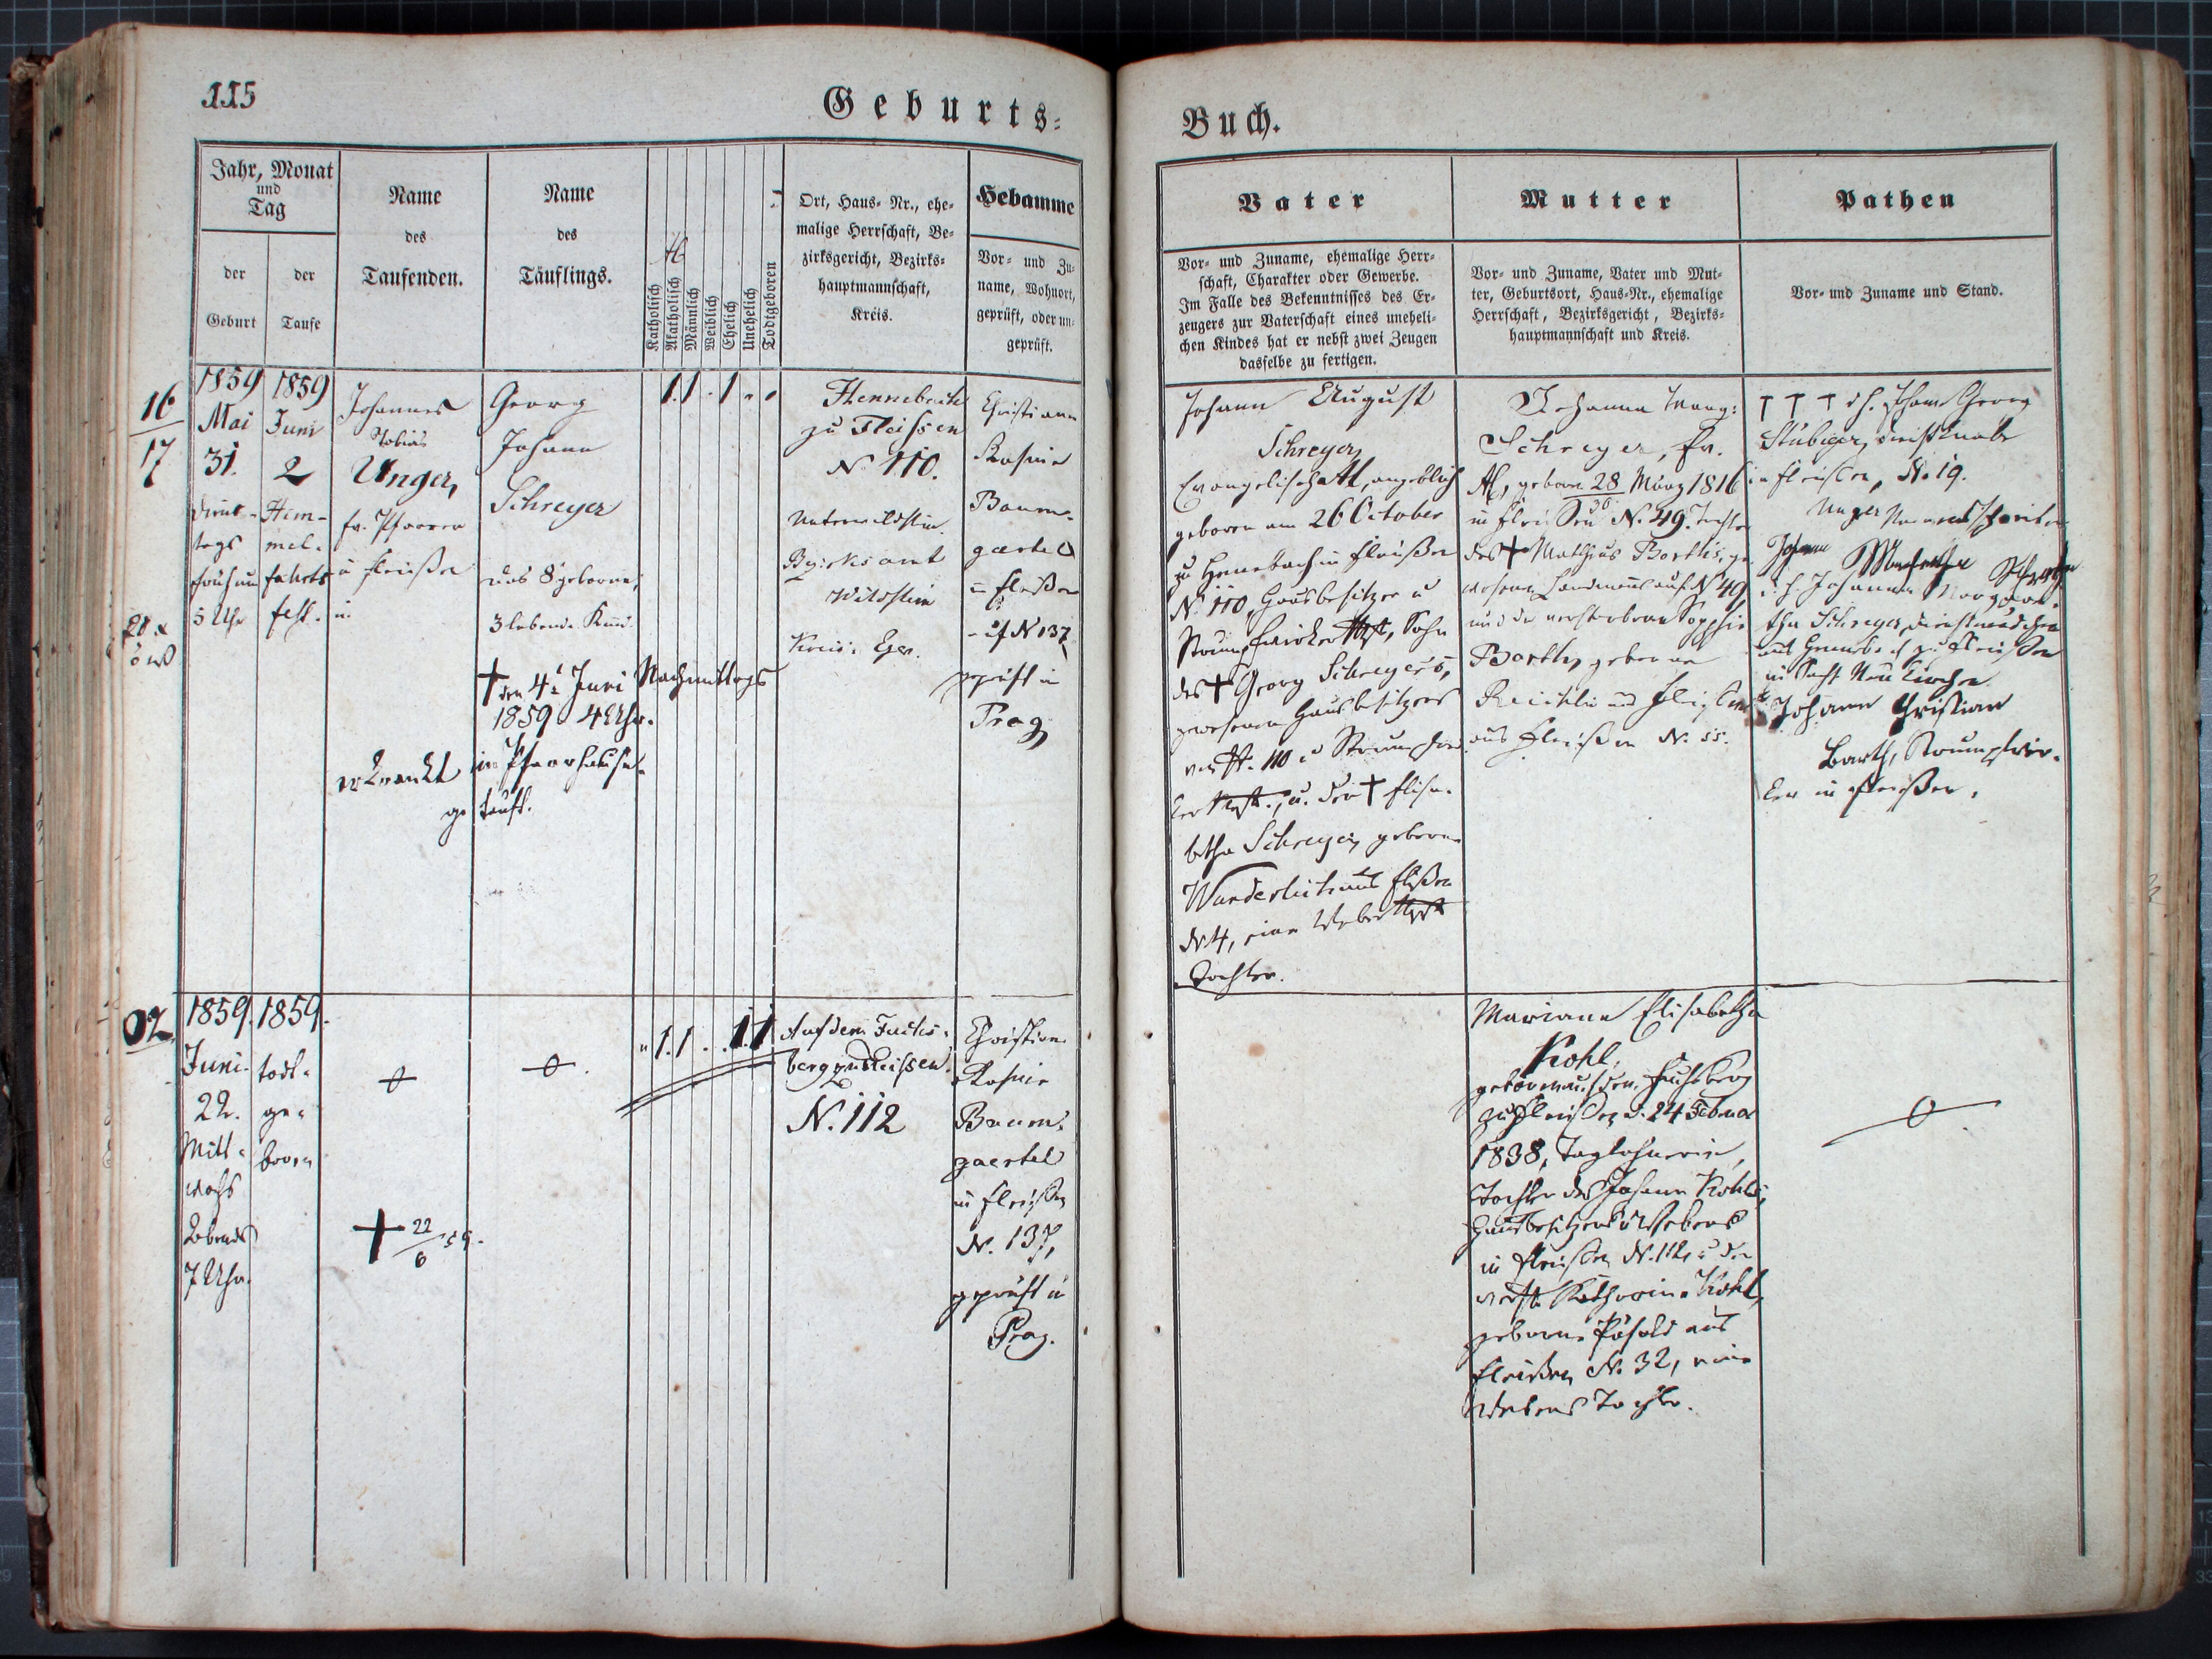 115
Geburts=
Buch.
Jahr, Monat
und
Tag
der
Geburt
der
Taufe
Name
des
Taufenden.
Name
des
Täuflings.
Katholisch
Akatholisch
Männlich
Weiblich
Ehelich
Unehelich
Todtgeboren
Ort, Haus= Nr., ehe=
malige Herrschaft, Be=
zirksgericht, Bezirks=
hauptmannschaft,
Kreis.
Hebamme
Vor= und Zu=
name, Wohnort,
geprüft, oder un=
geprüft.
Vater
Vor= und Zuname, ehemalige Herr=
schaft, Charakter oder Gewerbe.
Im Falle des Bekenntnisses des Er=
zeugers zur Vaterschaft eines uneheli=
chen Kindes hat er nebst zwei Zeugen
dasselbe zu fertigen.
Mutter
Vor= und Zuname, Vater und Mut=
ter, Geburtsort, Haus=Nr., ehemalige
Herrschaft, Bezirksgericht, Bezirks=
hauptmannschaft und Kreis.
Pathen
Vor= und Zuname und Stand.
16
17
1859
Mai
31.
Diens-
tags
früh um
5 Uhr
1859
Juni
2
Him-
mel-
fahrts
fest.
Johannes
Tobias
Unger,
ev. Pfarrer
in Fleißen
Georg
Johann
Schreyer
das 8t geborne,
3 lebende Kind.
† den 4t Juni Nachmittags
1859 4 Uhr.
erkrankt im Pfarrhause
getauft.
1. 1 . 1 " "
Hennebach
zu Fleissen
N. 110.
Unterwildstein
Bezirksamt
Wildstein
Kreis: Eger.
Christiane
Rosine
Baum-
gaertel
in Fleißen
N 137,
geprüft in
Prag
Johann August
Schreyer,
Evangelisch, angeblich
geboren am 26 October
zu Henebach in Fleußen
N. 110, Hausbesitzer u
Strumpfwirker, Sohn
des † Georg Schreyers,
gewesenen Hausbesitzers
N. 110 u Strumpfwir
ker, u. der † Elisa-
betha Schreyer, geborne
Wunderlich aus Fleißen
N 4, eine Weber
Tochter.
Johanna Marg:
Schreyer, Ev.
geboren 28 März 1816
in Fleißen N. 49. Tochter
des † Mathäus Barthes, ge
wesenen Landmanns auf N 49
und der verstorbenen Sophie
Barth, geborne
aus Fleißen N. 55.
††† d. h. Johann Georg
Stübiger, Dienstknabe
in Fleißen, N. 19.
Unger
Johann
d. h. Johanna Margare-
tha Schreyer, Dienstmädchen
aus Henebach zu Fleißen
in Neukirchen
Johann Christian
Barth, Strumpfwir-
ker in Fleißen.
1859.
Juni
22.
Mitt-
wochs
Abends
7 Uhr.
1859.
todt-
ge-
boren
† 22/6 59.
" 1. 1 . . 1 1
Auf dem Fuchs-
berg zu Fleissen.
N. 112
Christiane
Rosine
Baum-
gaertel
in Fleißen
N. 137,
geprüft in
Prag.
Mariane Elisabetha
Kohl,
geboren auf dem Fuchsberg
zu Fleißen d. 24 Februar
1838, Taglöhnerin,
Tochter des Johann Kohls,
Hausbesitzers u Webers
in Fleißen N. 112, u der
verst Katharina Kohl,
geborne Pösold aus
Fleißen N. 32, eine
Webers Tochter.